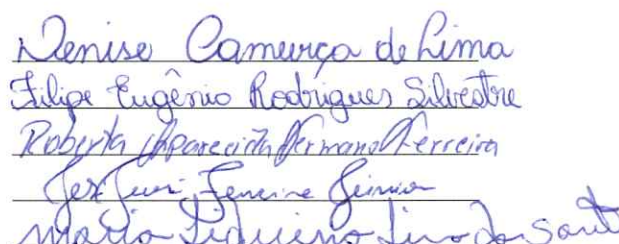 Denise Camurça de Lima
Filipe Eugênio Rodrigues Silvestre
Roberta Aparecida Germano Ferreira
Ferreira Júnior
Maria Lino dos Santos